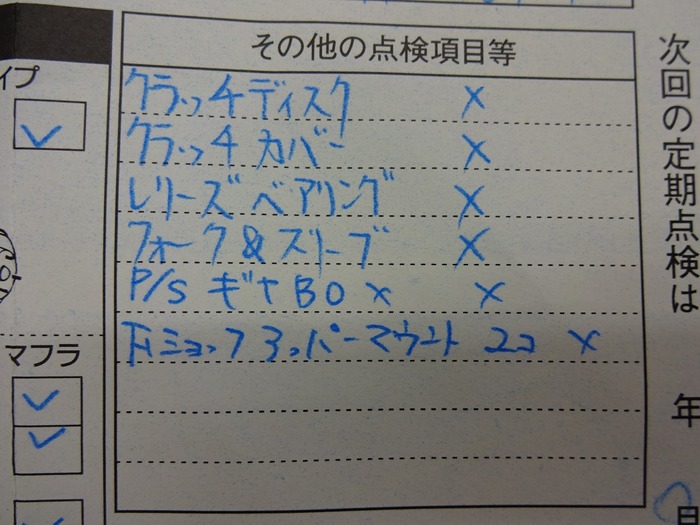 その他の点検項目等
クラッチディスク ×
クラッチカバー ×
レリーズベアリング ×
フォーク&スリーブ ×
P/S ギヤBOx ×
ショックアッパーマウント 2コ ×
イプ
マフラ
次回の定期点検は
年
月